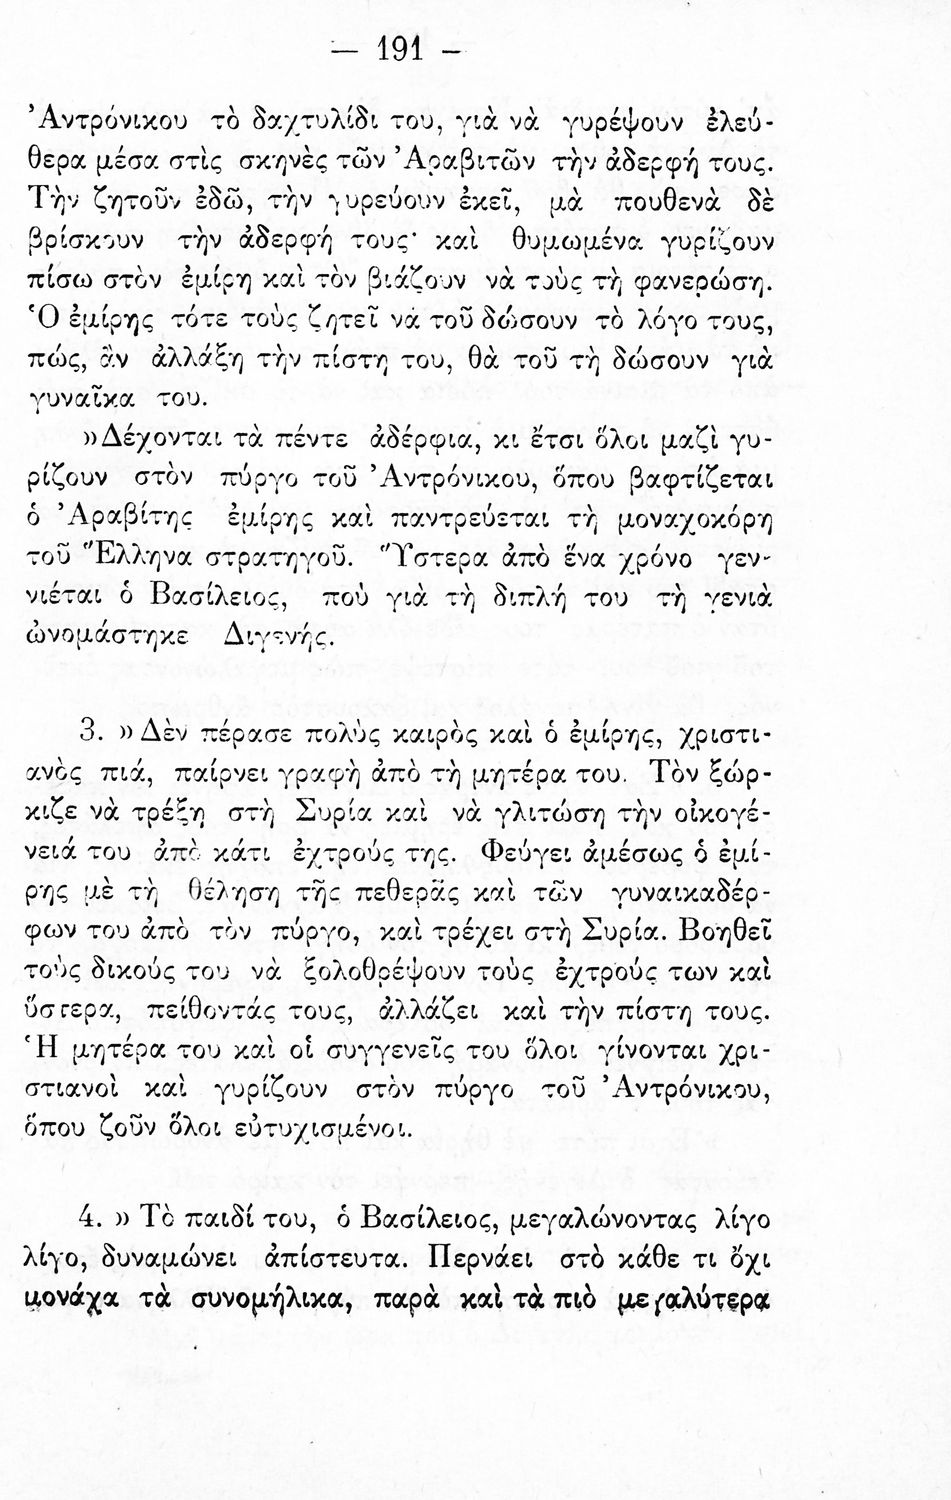 — 191 –
Ἀντρόνικου τὸ δαχτυλίδι του, γιὰ νὰ γυρέψουν ἐλεύ-
θερα μέσα στὶς σκηνὲς τῶν Ἀραβιτῶν τὴν ἀδερφή τους.
Τὴν ζητοῦν ἐδῶ, τὴν γυρεύουν ἐκεῖ, μὰ πουθενὰ δὲ
βρίσκουν τὴν ἀδερφή τους· καὶ θυμωμένα γυρίζουν
πίσω στὸν ἐμίρη καὶ τὸν βιάζουν νὰ τοὺς τὴ φανερώση.
Ὁ ἐμίρης τότε τοὺς ζητεῖ νὰ τοῦ δώσουν τὸ λόγο τους,
πώς, ἂν ἀλλάξη τὴν πίστη του, θὰ τοῦ τὴ δώσουν γιὰ
γυναῖκα του.
»Δέχονται τὰ πέντε ἀδέρφια, κι ἔτσι ὅλοι μαζὶ γυ-
ρίζουν στὸν πύργο τοῦ Ἀντρόνικου, ὅπου βαφτίζεται
ὁ Ἀραβίτης ἐμίρης καὶ παντρεύεται τὴ μοναχοκόρη
τοῦ Ἕλληνα στρατηγοῦ. Ὕστερα ἀπὸ ἕνα χρόνο γεν-
νιέται ὁ Βασίλειος, ποὺ γιὰ τὴ διπλή του τὴ γενιὰ
ὠνομάστηκε Διγενής.
3. »Δὲν πέρασε πολὺς καιρὸς καὶ ὁ ἐμίρης, χριστι-
ανὸς πιά, παίρνει γραφὴ ἀπὸ τὴ μητέρα του. Τὸν ξώρ-
κιζε νὰ τρέξη στὴ Συρία καὶ νὰ γλιτώση τὴν οἰκογέ-
νειά του ἀπὸ κάτι ἐχτρούς της. Φεύγει ἀμέσως ὁ ἐμί-
ρης μὲ τὴ θέληση τῆς πεθερᾶς καὶ τῶν γυναικαδέρ-
φων του ἀπὸ τὸν πύργο, καὶ τρέχει στὴ Συρία. Βοηθεῖ
τοὺς δικούς του νὰ ξολοθρέψουν τοὺς ἐχτρούς των καὶ
ὕστερα, πείθοντάς τους, ἀλλάζει καὶ τὴν πίστη τους.
Ἡ μητέρα του καὶ οἱ συγγενεῖς του ὅλοι γίνονται χρι-
στιανοὶ καὶ γυρίζουν στὸν πύργο τοῦ Ἀντρόνικου,
ὅπου ζοῦν ὅλοι εὐτυχισμένοι.
4. » Τὸ παιδί του, ὁ Βασίλειος, μεγαλώνοντας λίγο
λίγο, δυναμώνει ἀπίστευτα. Περνάει στὸ κάθε τι ὄχι
μονάχα τὰ συνομήλικα, παρὰ καὶ τὰ πιὸ μεγαλύτερα